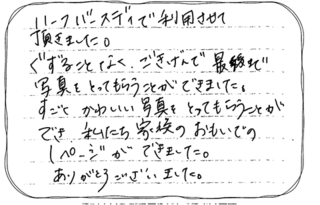 ハーフバースディで利用させて
頂きました。
ぐずることなく、ごきげんで最後まで
写真をとってもらうことができました。
すごくかわいい写真をとってもらうことが
でき 私たち家族のおもいでの
1ページができました。
ありがとうございました。